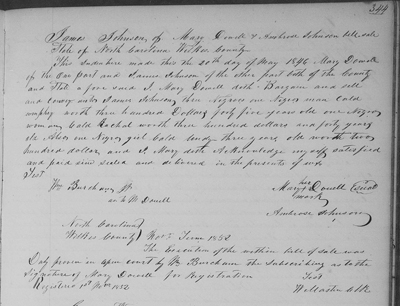 344
James Johnson, of Mary Dowell & Ambrose Johnson bill sale
State of North Carolina Wilkes County
This Indenture made this the 20th day of May 1846 Mary Dowell
of the one part and James Johnson of the other part both of the County
and State a fore said I Mary Dowell doth Bargain and sell
and convey unto James Johnson three Negroes one Negro man Cald
worth three hundred Dollars forty five years old one Negro
woman Cald Rachel worth three hundred dollars and forty years
old Also one Negro girl Cald three years old worth two
hundred dollars, and I Mary doth Acknowledge my self satisfied
and paid sined sealed and delivered in the presents of us
Test
Wm Burcham Jr
Dowell
her
Mary Dowell (Seal)
mark
Ambrose Johnson
North Carolina
Wilkes County Nov Term 1852
The Execution of the within bill of sale was
Duly proven in open court by Wm Burcham the subscribing as to the
Signature of Mary Dowell for Registration
Test
Registered 1852
W Mastin Clk